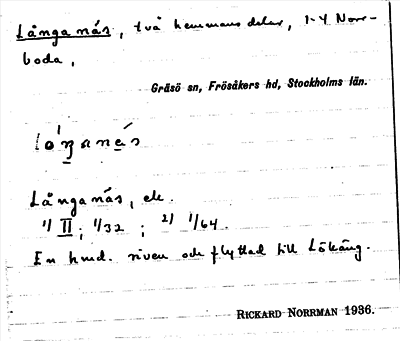 Långanäs, två hemmansdelar, 1-4 Norr-
boda,
Gräsö sn, Frösåkers hd, Stockholms län.
lo̗ŋanäs
Långanäs, ek.
1/ II; 1/32 ; 2/ 1/64.
En hmd. riven och flyttad till Lökäng.
RICKARD NORRMAN 1936.